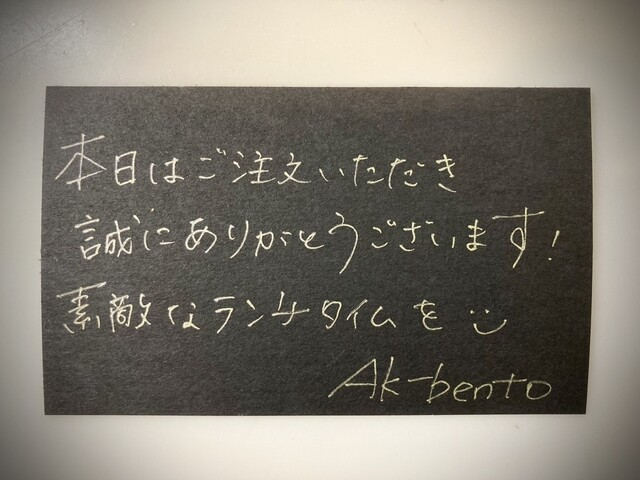 本日はご注文いただき
誠にありがとうございます!
素敵なランチタイムを
Ak-bento